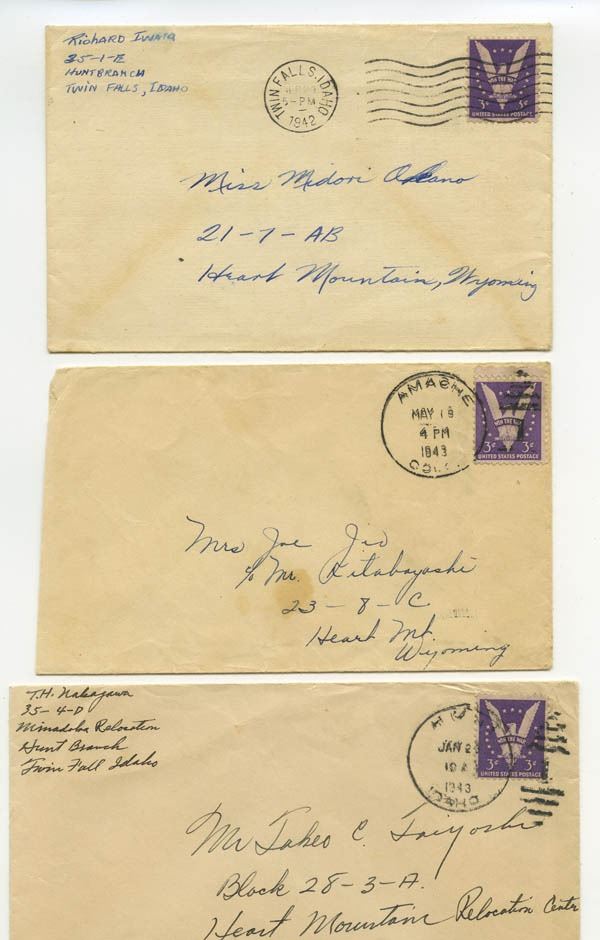 Richard Iwata
35-1-E
HUNT BRANCH
TWIN FALLS, IDAHO
TWIN FALLS, IDAHO
5-PM
1942
WIN THE WAR
3¢ 3¢
UNITED STATES POSTAGE
Miss Midori
21-7-AB
Heart Mountain, Wyoming
AMACHE
MAY 19
4 PM
1943
COLO.
WIN THE WAR
3¢ 3¢
UNITED STATES POSTAGE
Mrs Joe
c/o Mr. Kitabayashi
23-8-C
Heart Mt.
Wyoming
T.H. Nakagawa
35-4-D
Minadoka Relocation
Hunt Branch
Twin Fall Idaho
JAN
1943
WIN THE WAR
3¢ 3¢
UNITED STATES POSTAGE
Mr Takeo C.
Block 28-3-A.
Heart Mountain Relocation Center